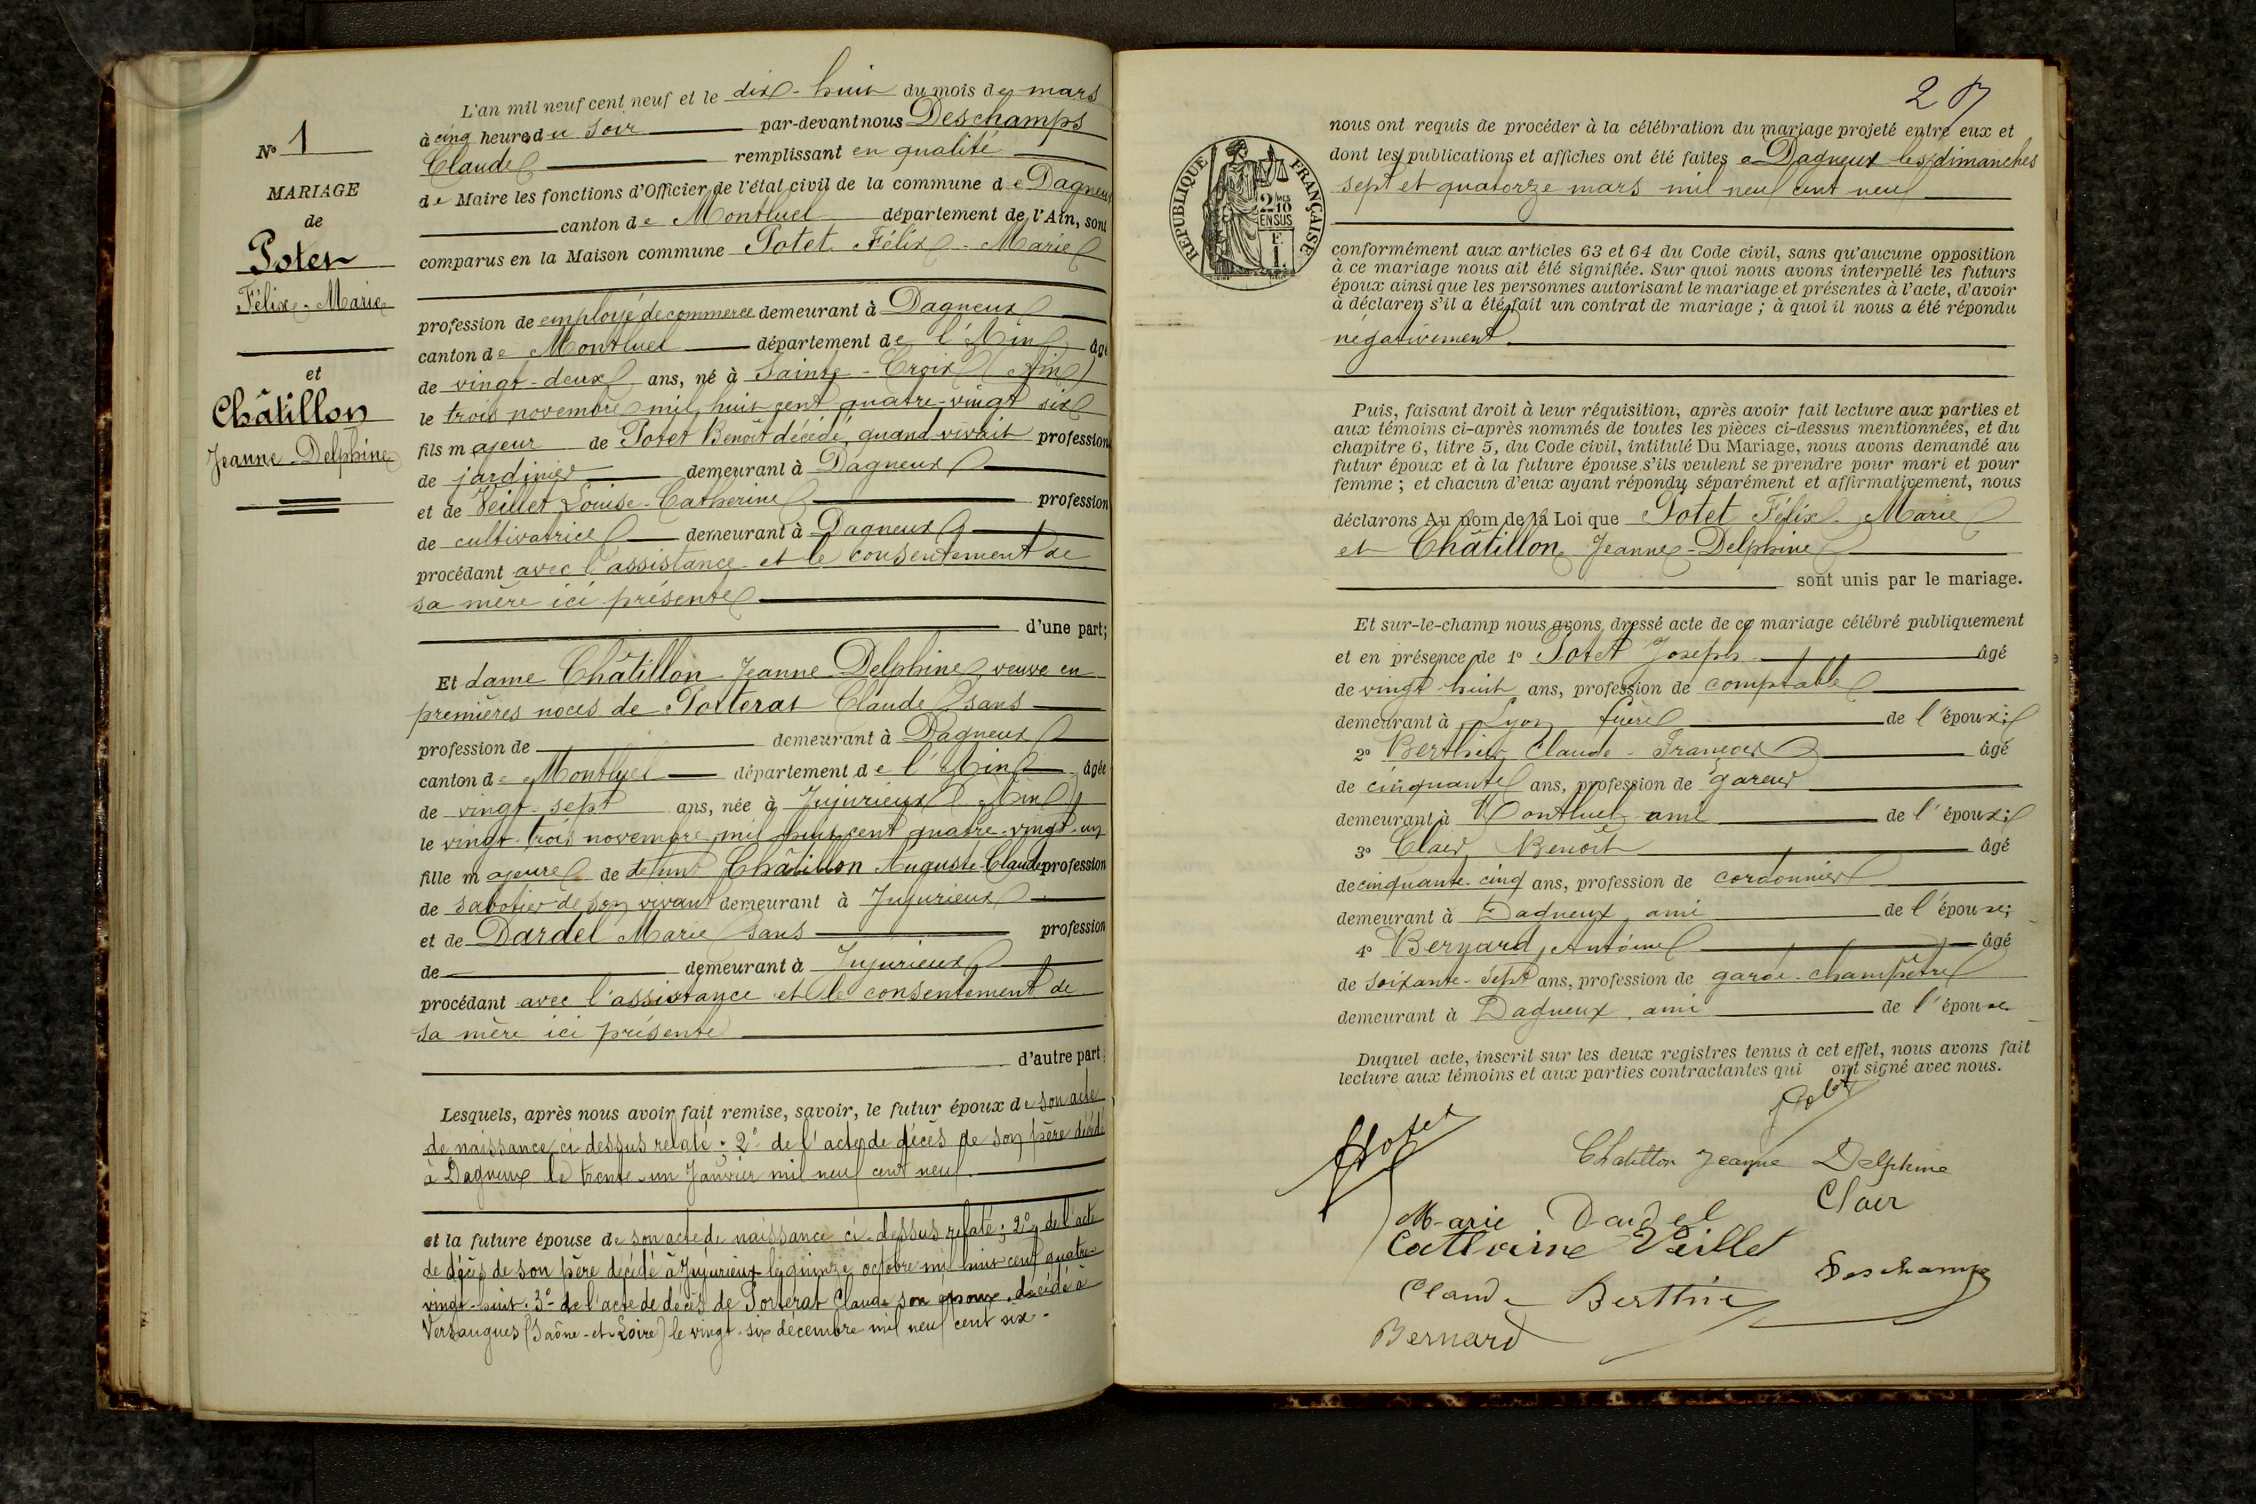 N° 1
MARIAGE
de
Potet
Félix-Marie
et
Châtillon
Jeanne-Delphine
L'an mil neuf cent neuf et le dix-huit du mois de mars
à cinq heures du soir par-devant nous Deschamps
Claude remplissant en qualité
de Maire les fonctions d'Officier de l'état civil de la commune de Dagneux
canton de Montluel département de l'Ain, sont
comparus en la Maison commune Potet Félix-Marie
profession de employé de commerce demeurant à Dagneux
canton de Montluel département de l'Ain âgé
de vingt-deux ans, né à Sainte-Croix (Ain)
le trois novembre mil huit cent quatre-vingt six
fils majeur de Potet Benoît décédé, quand vivait profession
de jardinier demeurant à Dagneux
et de Veillet Louise-Catherine profession
de cultivatrice demeurant à Dagneux
procédant avec l'assistance et le consentement de
sa mère ici présente
d'une part;
Et dame Châtillon Jeanne Delphine, veuve en
premières noces de Porterat Claude sans
profession de demeurant à Dagneux
canton de Montluel département de l'Ain âgée
de vingt-sept ans, née à Jujurieux (Ain)
le vingt-trois novembre mil huit cent quatre-vingt-un
fille majeure de défunt Châtillon Auguste-Claude profession
de sabotier de son vivant demeurant à Jujurieux
et de Dardel Marie sans profession
de demeurant à Jujurieux
procédant avec l'assistance et le consentement de
sa mère ici présente
d'autre part;
Lesquels, après nous avoir fait remise, savoir, le futur époux de son acte
de naissance ci dessus relaté; 2° de l'acte de décès de son père décédé
à Dagneux le trente-un Janvier mil neuf cent neuf.
et la future épouse de son acte de naissance ci-dessus relaté; 2° de l'acte
de décès de son père décédé à Jujurieux le quinze octobre mil huit cent quatre-
vingt-huit. 3° de l'acte de décès de Porterat Claude son époux, décédé à
Versaugues (Saône-et-Loire) le vingt-six décembre mil neuf cent six.
RÉPUBLIQUE FRANÇAISE
2/10 MES
EN SUS
F.
1.
nous ont requis de procéder à la célébration du mariage projeté entre eux et
dont les publications et affiches ont été faites à Dagneux les dimanches
sept et quatorze mars mil neuf cent neuf
conformément aux articles 63 et 64 du Code civil, sans qu'aucune opposition
à ce mariage nous ait été signifiée. Sur quoi nous avons interpellé les futurs
époux ainsi que les personnes autorisant le mariage et présentes à l'acte, d'avoir
à déclarer s'il a été fait un contrat de mariage; à quoi il nous a été répondu
négativement
Puis, faisant droit à leur réquisition, après avoir fait lecture aux parties et
aux témoins ci-après nommés de toutes les pièces ci-dessus mentionnées, et du
chapitre 6, titre 5, du Code civil, intitulé Du Mariage, nous avons demandé au
futur époux et à la future épouse s'ils veulent se prendre pour mari et pour
femme; et chacun d'eux ayant répondu séparément et affirmativement, nous
déclarons Au nom de la Loi que Potet Félix-Marie
et Châtillon Jeanne-Delphine
sont unis par le mariage.
Et sur-le-champ nous avons dressé acte de ce mariage célébré publiquement
et en présence de 1° Potet Joseph âgé
de vingt-huit ans, profession de comptable
demeurant à Lyon frère de l'époux;
2° Berthier Claude-François âgé
de cinquante ans, profession de gareur
demeurant à Montluel ami de l'époux;
3° Clair Benoît âgé
de cinquante-cinq ans, profession de cordonnier
demeurant à Dagneux, ami de l'épouse;
4° Bernard Antoine âgé
de soixante-sept ans, profession de garde-champêtre
demeurant à Dagneux, ami de l'épouse
Duquel acte, inscrit sur les deux registres tenus à cet effet, nous avons fait
lecture aux témoins et aux parties contractantes qui ont signé avec nous.
J Potet
F Potet
Chatillon Jeanne Delphine
Clair
Marie Dardel
Catherine Veillet
Deschamps
Claude Berthier
Bernard